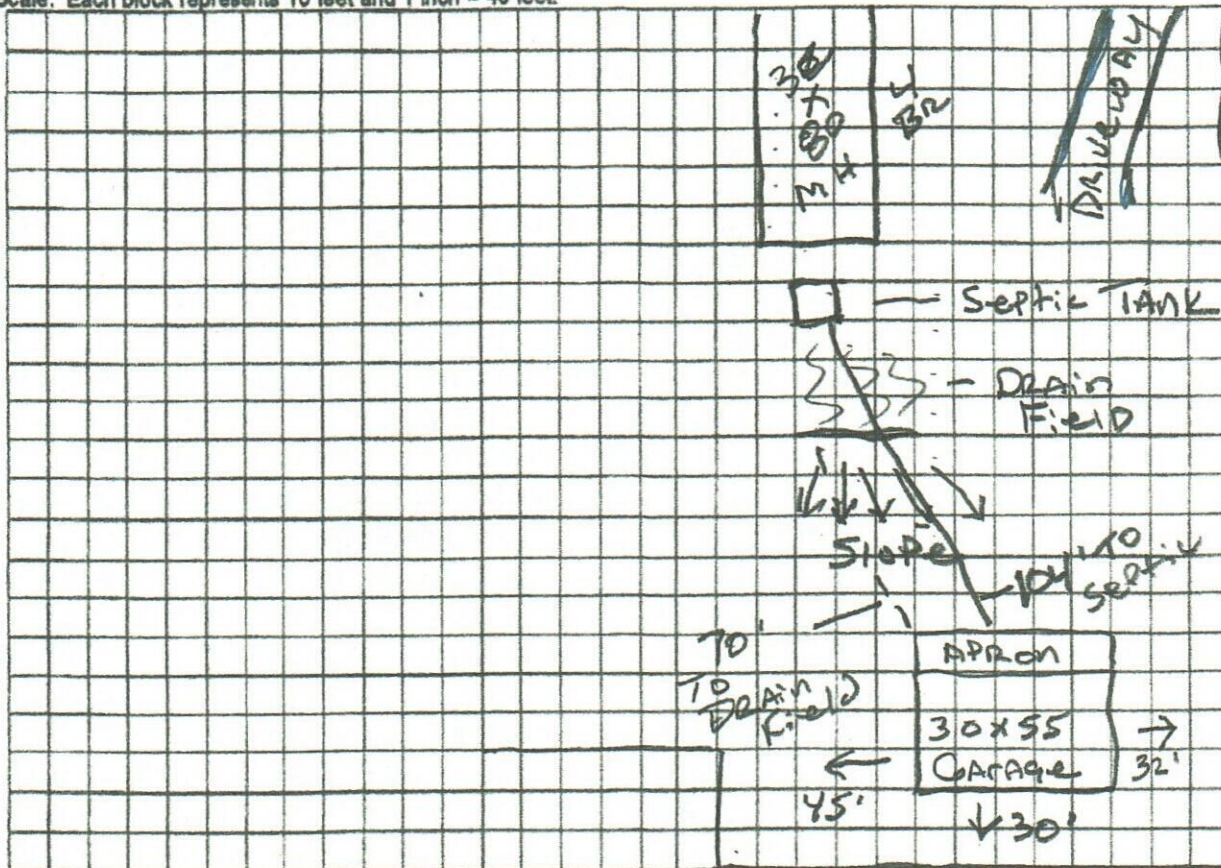 Scale: Each block represents 10 feet and 1 inch = 40 feet.
4
BR
DRIVEWAY
Septic TANK
DRAin
Field
Slope
104' TO
Septic
70'
TO
DRAin
Field
APRon
30x55
GArAge
32'
45'
30'